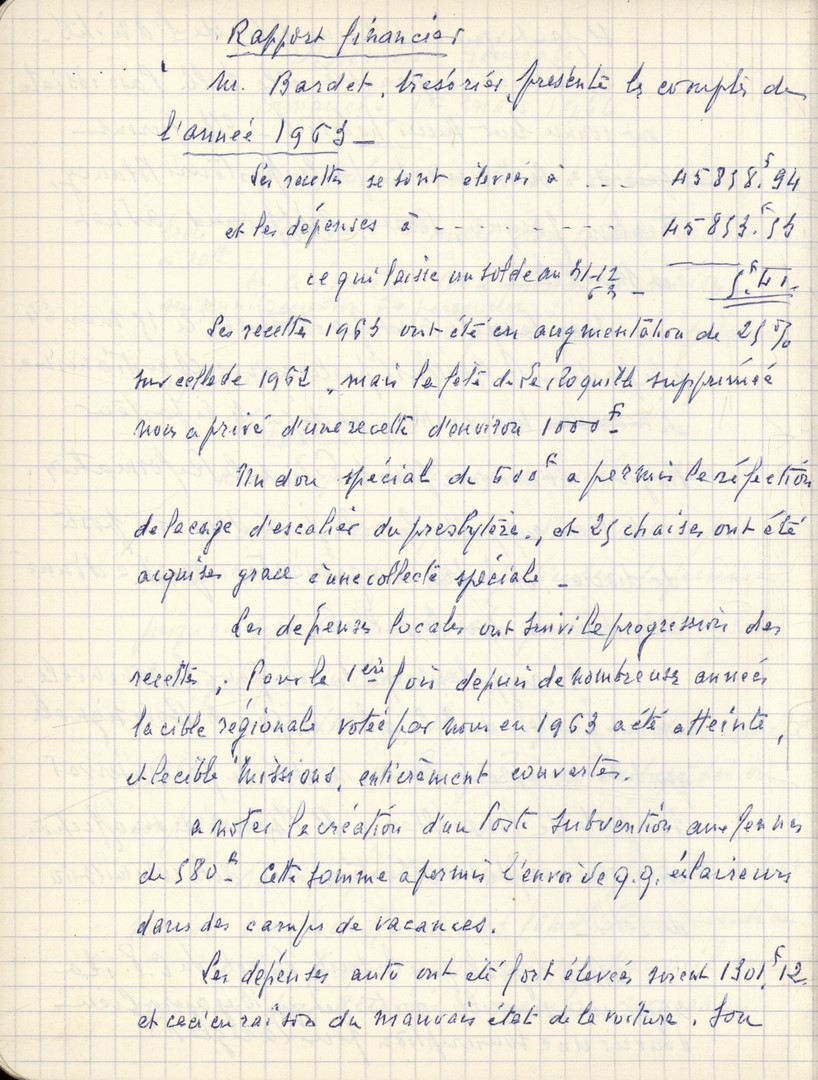 Rapport financier
M. Bardet, trésorier, présente les comptes de
l'année 1963 –
Les recettes se sont élevées à ... 45858.F94
et les dépenses à - - - - - - - - 45853.F53
ce qui laisse un solde au 31-12 63 – 5.F41.
Les recettes 1963 ont été en augmentation de 25%
sur celle de 1962, mais la fête de supprimée
nous a privé d'une recette d'environ 1000F –
Un don spécial de 600F a permis la réfection
de la cage d'escalier du presbytère., et 25 chaises ont été
acquises grace à une collecte spéciale –
Les dépenses locales ont suivi la progression des
recettes ; Pour la 1ère fois depuis de nombreuses années
la cible régionale votée par nous en 1963 a été atteinte,
et la cible "Missions, entièrement couvertes.
a noter la création d'un Poste subvention aux Jeunes
de 580F – Cette somme a permis l'envoi de q.q. éclaireurs
dans des camps de vacances.
Les dépenses auto ont été fort élevées soient 1301.F12
et ceci en raison du mauvais état de la voiture. Son